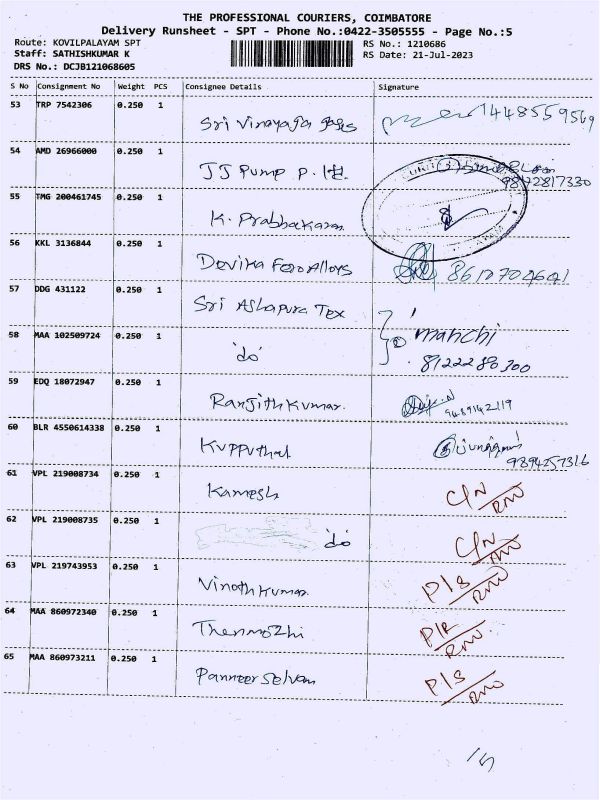 THE PROFESSIONAL COURIERS, COIMBATORE
Delivery Runsheet - SPT - Phone No.:0422-3505555 - Page No.:5
Route: KOVILPALAYAM SPT RS No.: 1210686
Staff: SATHISHKUMAR K RS Date: 21-Jul-2023
DRS No.: DCJB121068605
S No Consignment No Weight PCS Consignee Details Signature
53 TRP 7542306 0.250 1 Sri Vinayaga
54 AMD 26966000 0.250 1 JJ Pump P. ltd. 9842817330
55 TMG 200461745 0.250 1 K. Prabhakaran
56 KKL 3136844 0.250 1 Devika Ferro Alloys
57 DDG 431122 0.250 1 Sri Ashapura Tex
58 MAA 102509724 0.250 1 'do' 8122280300
59 EDQ 18072947 0.250 1 Ranjith Kumar. 9489142119
60 BLR 4550614338 0.250 1 Kupputhal 9894257316
61 VPL 219008734 0.250 1 Kamesh C/N RND
62 VPL 219008735 0.250 1 'do' C/N RND
63 VPL 219743953 0.250 1 Vinoth Kumar. P/S RND
64 MAA 860972340 0.250 1 Thenmozhi P/R RND
65 MAA 860973211 0.250 1 Panneer Selvam P/S RND